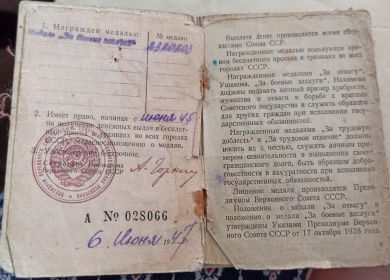 1. Награжден медалью:
Медаль „За боевые заслуги"
№ медали
2320203
2. Имеет право, начиная с июня 45
на получение денежных выдач и бесплат-
ный проезд в трамваях во всех городах
СССР, согласно положению о медали.
3. Удостоверение бессрочное.
Секретарь Президиума
Верховного Совета СССР
А. Горкин
А № 028066
6 Июня 1947
Выплата денег производится всеми сбер-
кассами Союза ССР.
Награжденные медалью пользуются пра-
вом бесплатного проезда в трамваях во всех
городах СССР.
Награжденные медалями „За отвагу",
Ушакова, „За боевые заслуги", Нахимова
должны подавать личный пример храбрости,
мужества и отваги в борьбе с врагами
Советского государства и служить образцом
для других граждан при исполнении госу-
дарственных обязанностей.
Награжденные медалями „За трудовую
доблесть" и „За трудовое отличие" должны
носить их с честью, служить личным при-
мером сознательности в выполнении своего
гражданского долга, быть образцом добро-
совестности и аккуратности при исполнении
государственных обязанностей.
Лишение медали производится Прези-
диумом Верховного Совета СССР.
Положение о медали „За отвагу" и
положение о медали „За боевые заслуги"
утверждены Указами Президиума Верхов-
ного Совета СССР от 17 октября 1938 года.